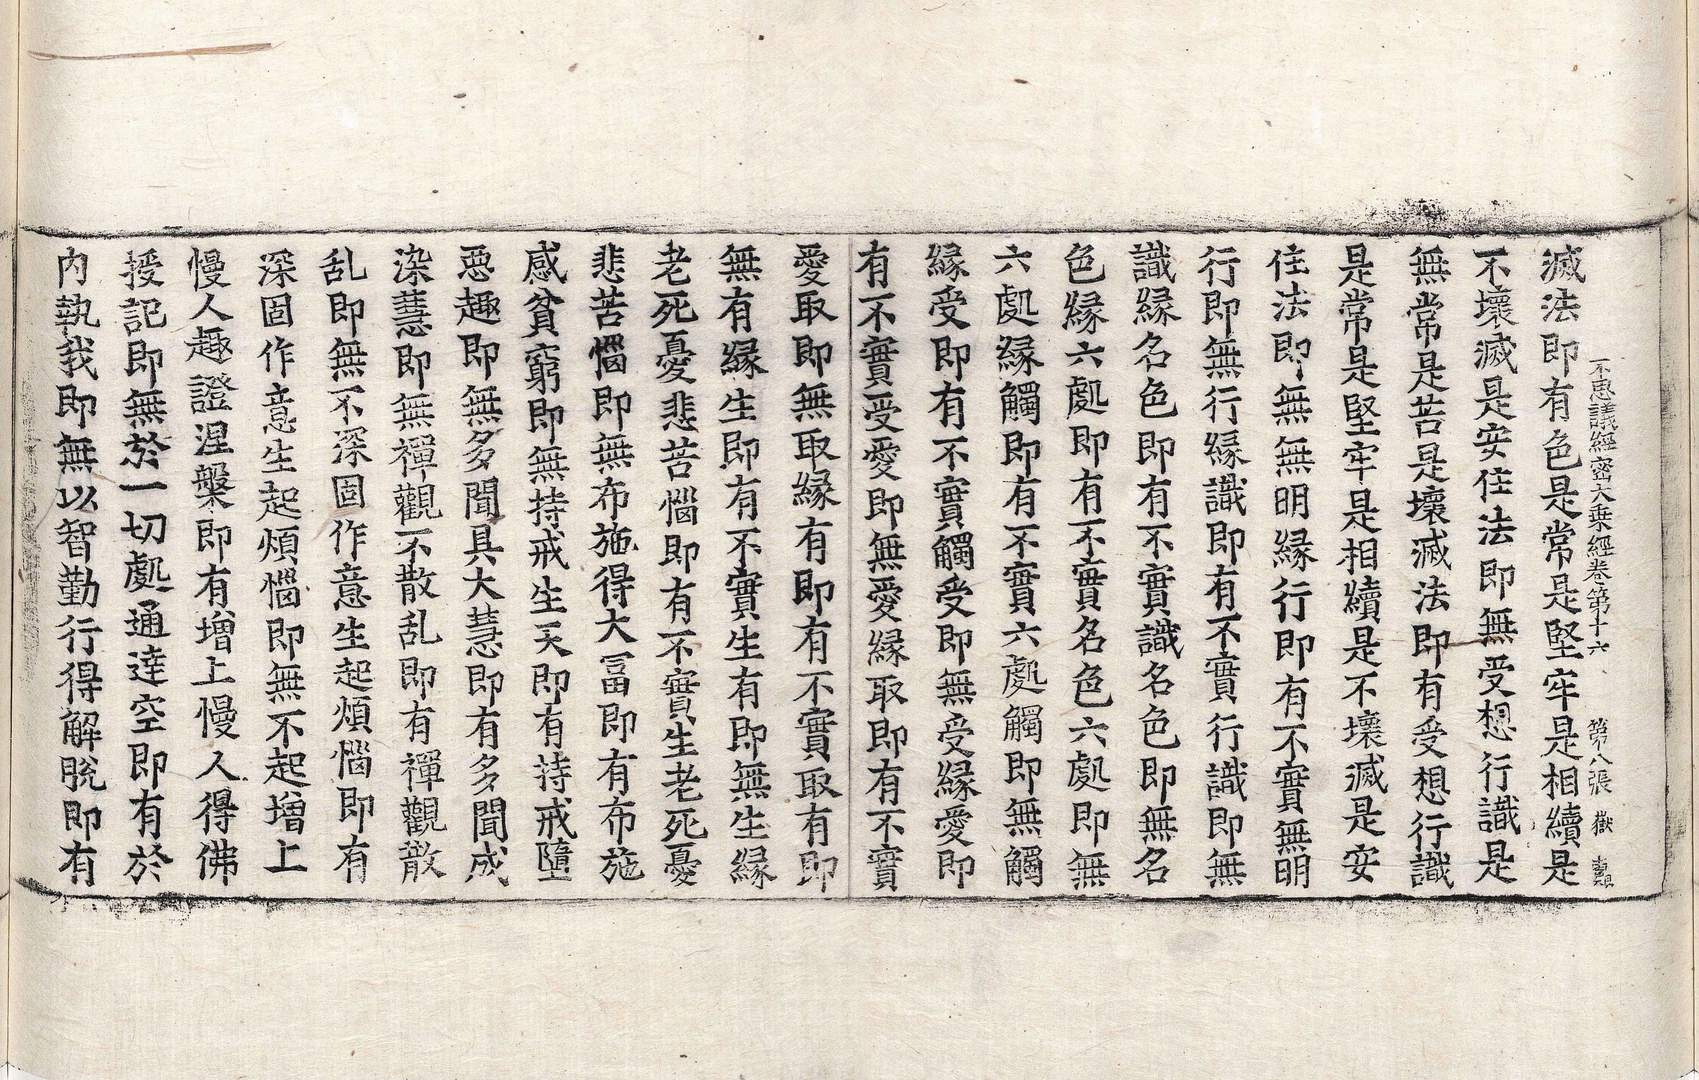 不思議經密大乗經卷第十六　第八張　嶽
滅法即有色是常是堅牢是相續是
不壞滅是安住法即無受想行識是
無常是苦是壞滅法即有受想行識
是常是堅牢是相續是不壞滅是安
住法即無無明緣行即有不實無明
行即無行緣識即有不實行識即無
識緣名色即有不實識名色即無名
色緣六處即有不實名色六處即無
六處緣觸即有不實六處觸即無觸
緣受即有不實觸受即無受緣愛即
有不實受愛即無愛緣取即有不實
愛取即無取緣有即有不實取有即
無有緣生即有不實生有即無生緣
老死憂悲苦惱即有不實生老死憂
悲苦惱即無布施得大冨即有布施
感貧窮即無持戒生天即有持戒墮
惡趣即無多聞具大慧即有多聞成
染慧即無禪觀不散乱即有禪觀散
乱即無不深固作意生起煩惱即有
深固作意生起煩惱即無不起增上
慢人趣證涅槃即有增上慢人得佛
授記即無於一切處通達空即有於
內執我即無以智勤行得解脫即有